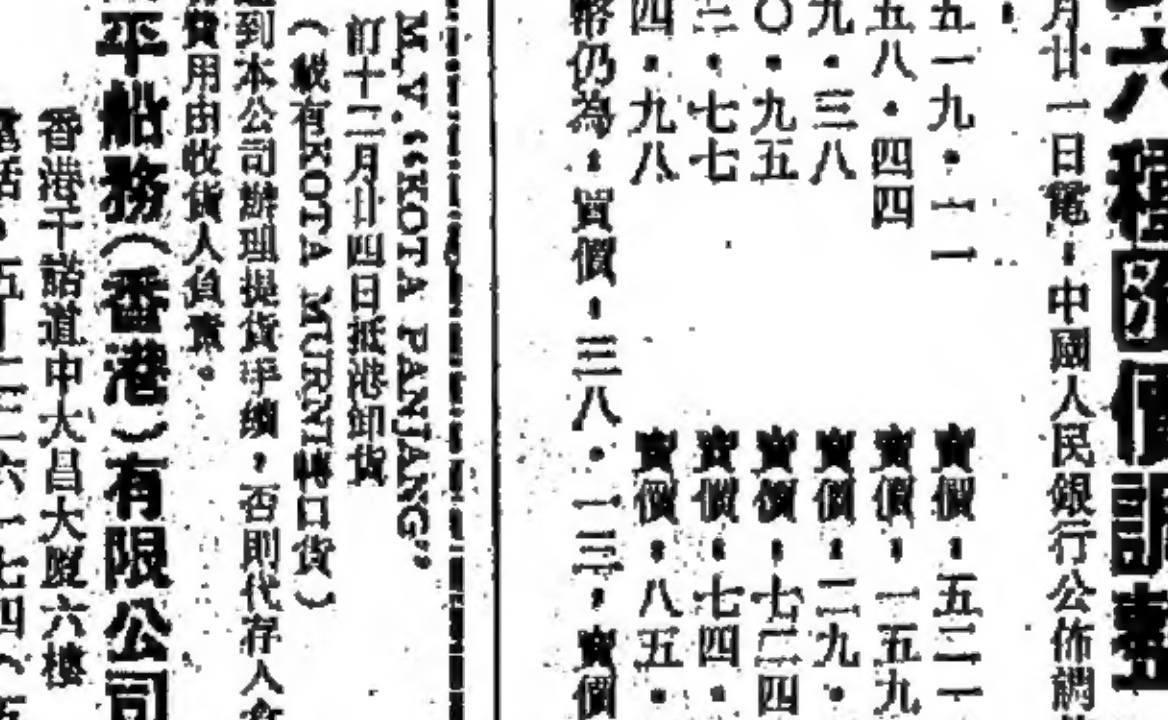 六種匯價調整
月廿一日電：中國人民銀行公佈調
五一九・一一 賣價：五二一
五八・四四 賣價：一五九
九・三八 賣價：二九・
〇・九五 賣價：七二四
三・七七 賣價：七四・
四・九八 賣價：八五・
幣仍為：買價：三八・一三，賣價
M.V.“KOTA PANJANG”
訂十二月廿四日抵港卸貨
（載有KOTA MURNI轉口貨）
到本公司辦理提貨手續，否則代存入倉
費用由收貨人負責。
平船務（香港）有限公司
香港干諾道中大昌大廈六樓
電話：五